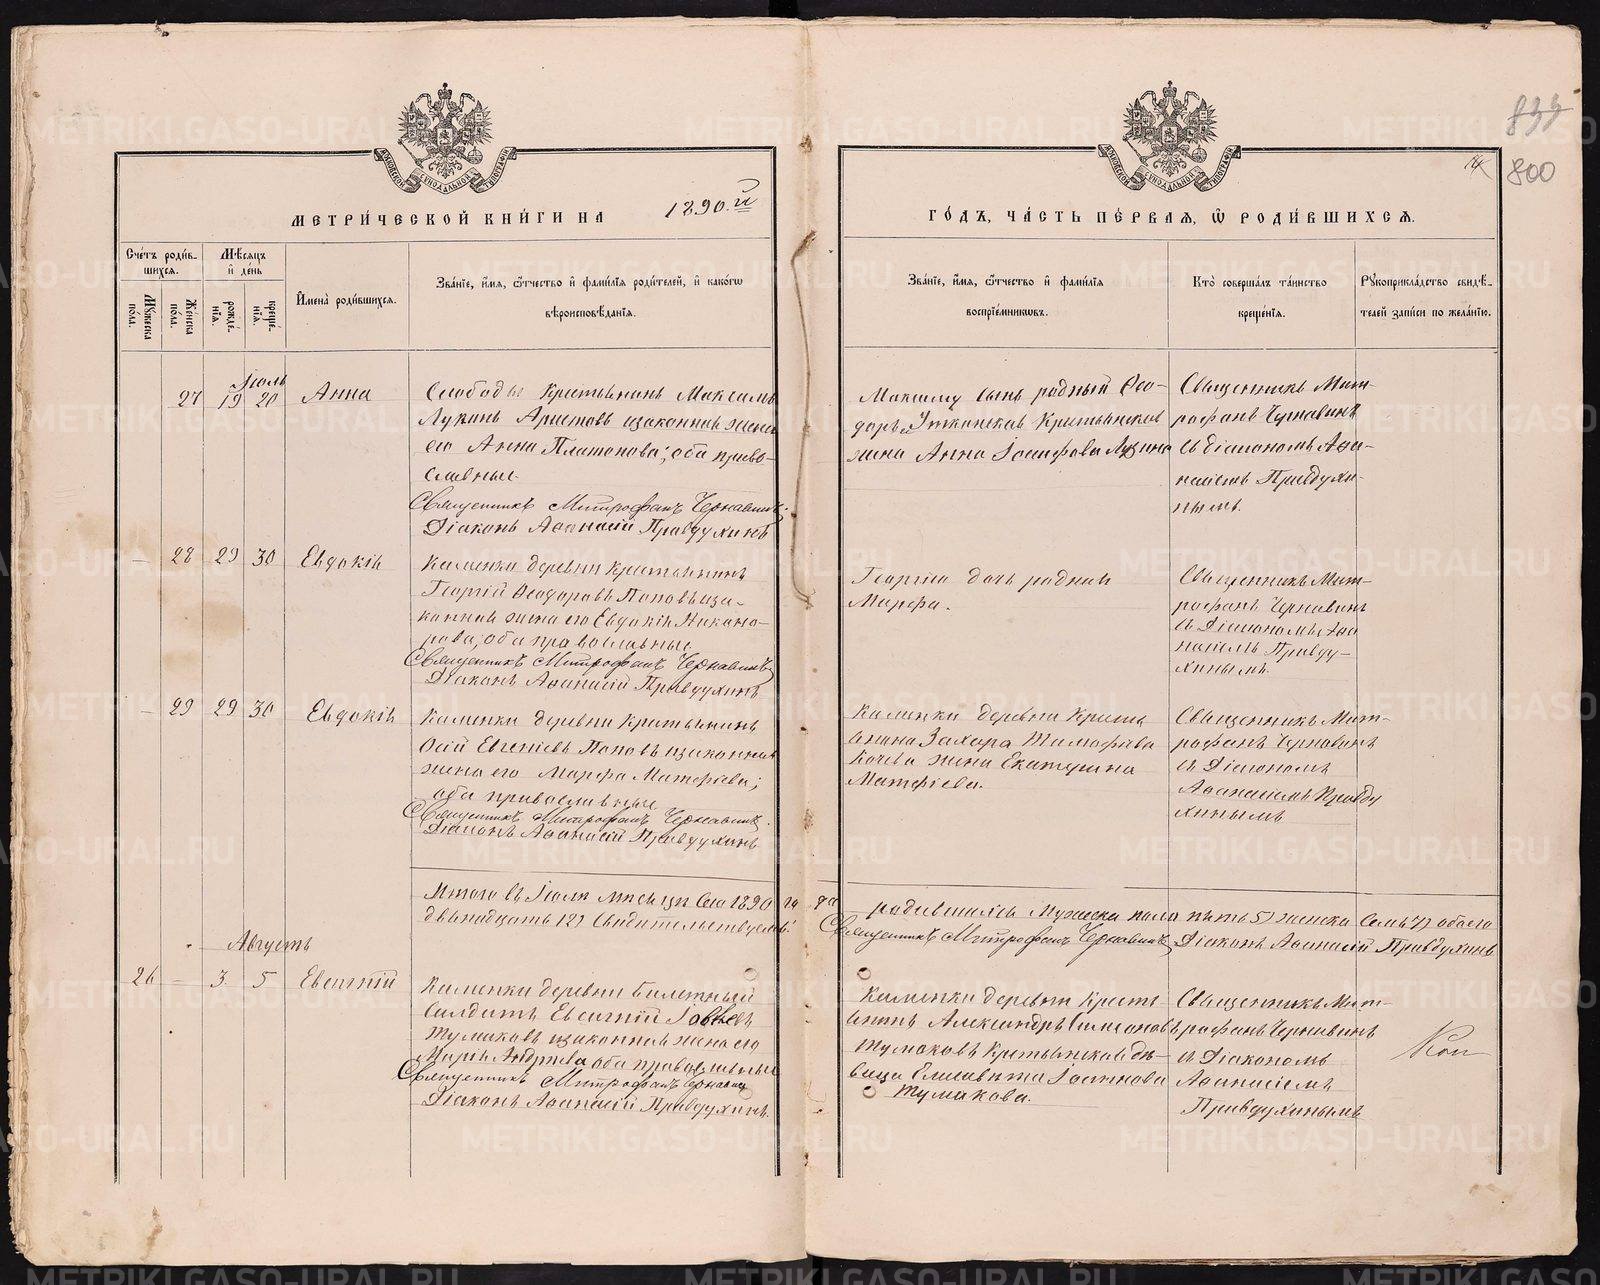 833
800
МЕТРИЧЕСКОЙ КНИГИ НА 1890.й
ГОДЪ, ЧАСТЬ ПЕРВАЯ, Ѡ РОДИВШИХСЯ.
Счетъ родившихся.
Мужеска пола.
Женска пола.
Мѣсяцъ и день
рожденія.
крещенія.
Имена родившихся.
Званіе, имя, ѿчество и фамилія родителей, и какогѡ
вѣроисповѣданія.
Званіе, имя, ѿчество и фамилія
воспріемникѡвъ.
Кто совершалъ таинство
крещенія.
Рукоприкладство свидѣтелей записи по желанію.
Іюль
27 19 20 Анна
Слободы крестьянинъ Максимъ
Лукинъ Аристовъ изаконная жена
его Анна Платонова; оба право-
славные.
Священникъ Митрофанъ Чернавинъ.
Діаконъ Аѳанасій Правдухинъ
Максиму сынъ родный Ѳео-
доръ и Уткинская Крестьянская
жена Анна Іосифова
Священникъ Мит-
рофанъ Чернавинъ
съ діакономъ Аѳа-
насіемъ Правдухи-
нымъ.
— 28 29 30 Евдокія
Каменки деревни крестьянинъ
Георгій Ѳеодоровъ Поповъ иза-
конная жена его Евдокія Никано-
рова; оба православные
Священникъ Митрофанъ Чернавинъ
Діаконъ Аѳанасій Правдухинъ
Георгію дочь родная
Марѳа.
Священникъ Мит-
рофанъ Чернавинъ
съ Діакономъ Аѳа
насіемъ Правду-
хинымъ.
— 29 29 30 Евдокія
Каменки деревни крестьянинъ
Осій Евгеніевъ Поповъ изаконная
жена его Марѳа Матѳіева;
оба православные
Священникъ Митрофанъ Чернавинъ.
Діаконъ Аѳанасій Правдухинъ
Каменки деревни Кресть
янина Захара Тимофѣева
жена Екатерина
Матѳіева.
Священникъ Мит-
рофанъ Чернавинъ
съ Діакономъ
Аѳанасіемъ Правду
хинымъ
Итого въ Іюлѣ мѣсяцѣ сего 1890 года родившихся Мужеска пола пять 5) женска Семь 7) обоего
двѣнадцать 12) Свидѣтельствуемъ: Священникъ Митрофанъ Чернавинъ Діаконъ Аѳанасій Правдухинъ
Августъ
26 — 3. 5 Евсигній
Каменки деревни Билетный
солдатъ Евсигній Іовлевъ
Тумаковъ изаконная жена его
Марія Андреева оба православные
Священникъ Митрофанъ Чернавинъ
Діаконъ Аѳанасій Правдухинъ.
Каменки деревни Кресть
янинъ Александръ Симеоновъ
Тумаковъ Крестьянская дѣ-
вица Елисавета Іоаннова
Тумакова.
Священникъ Мит-
рофанъ Чернавинъ
съ Діакономъ
Аѳанасіемъ
Правдухинымъ
Коп
METRIKI.GASO-URAL.RU